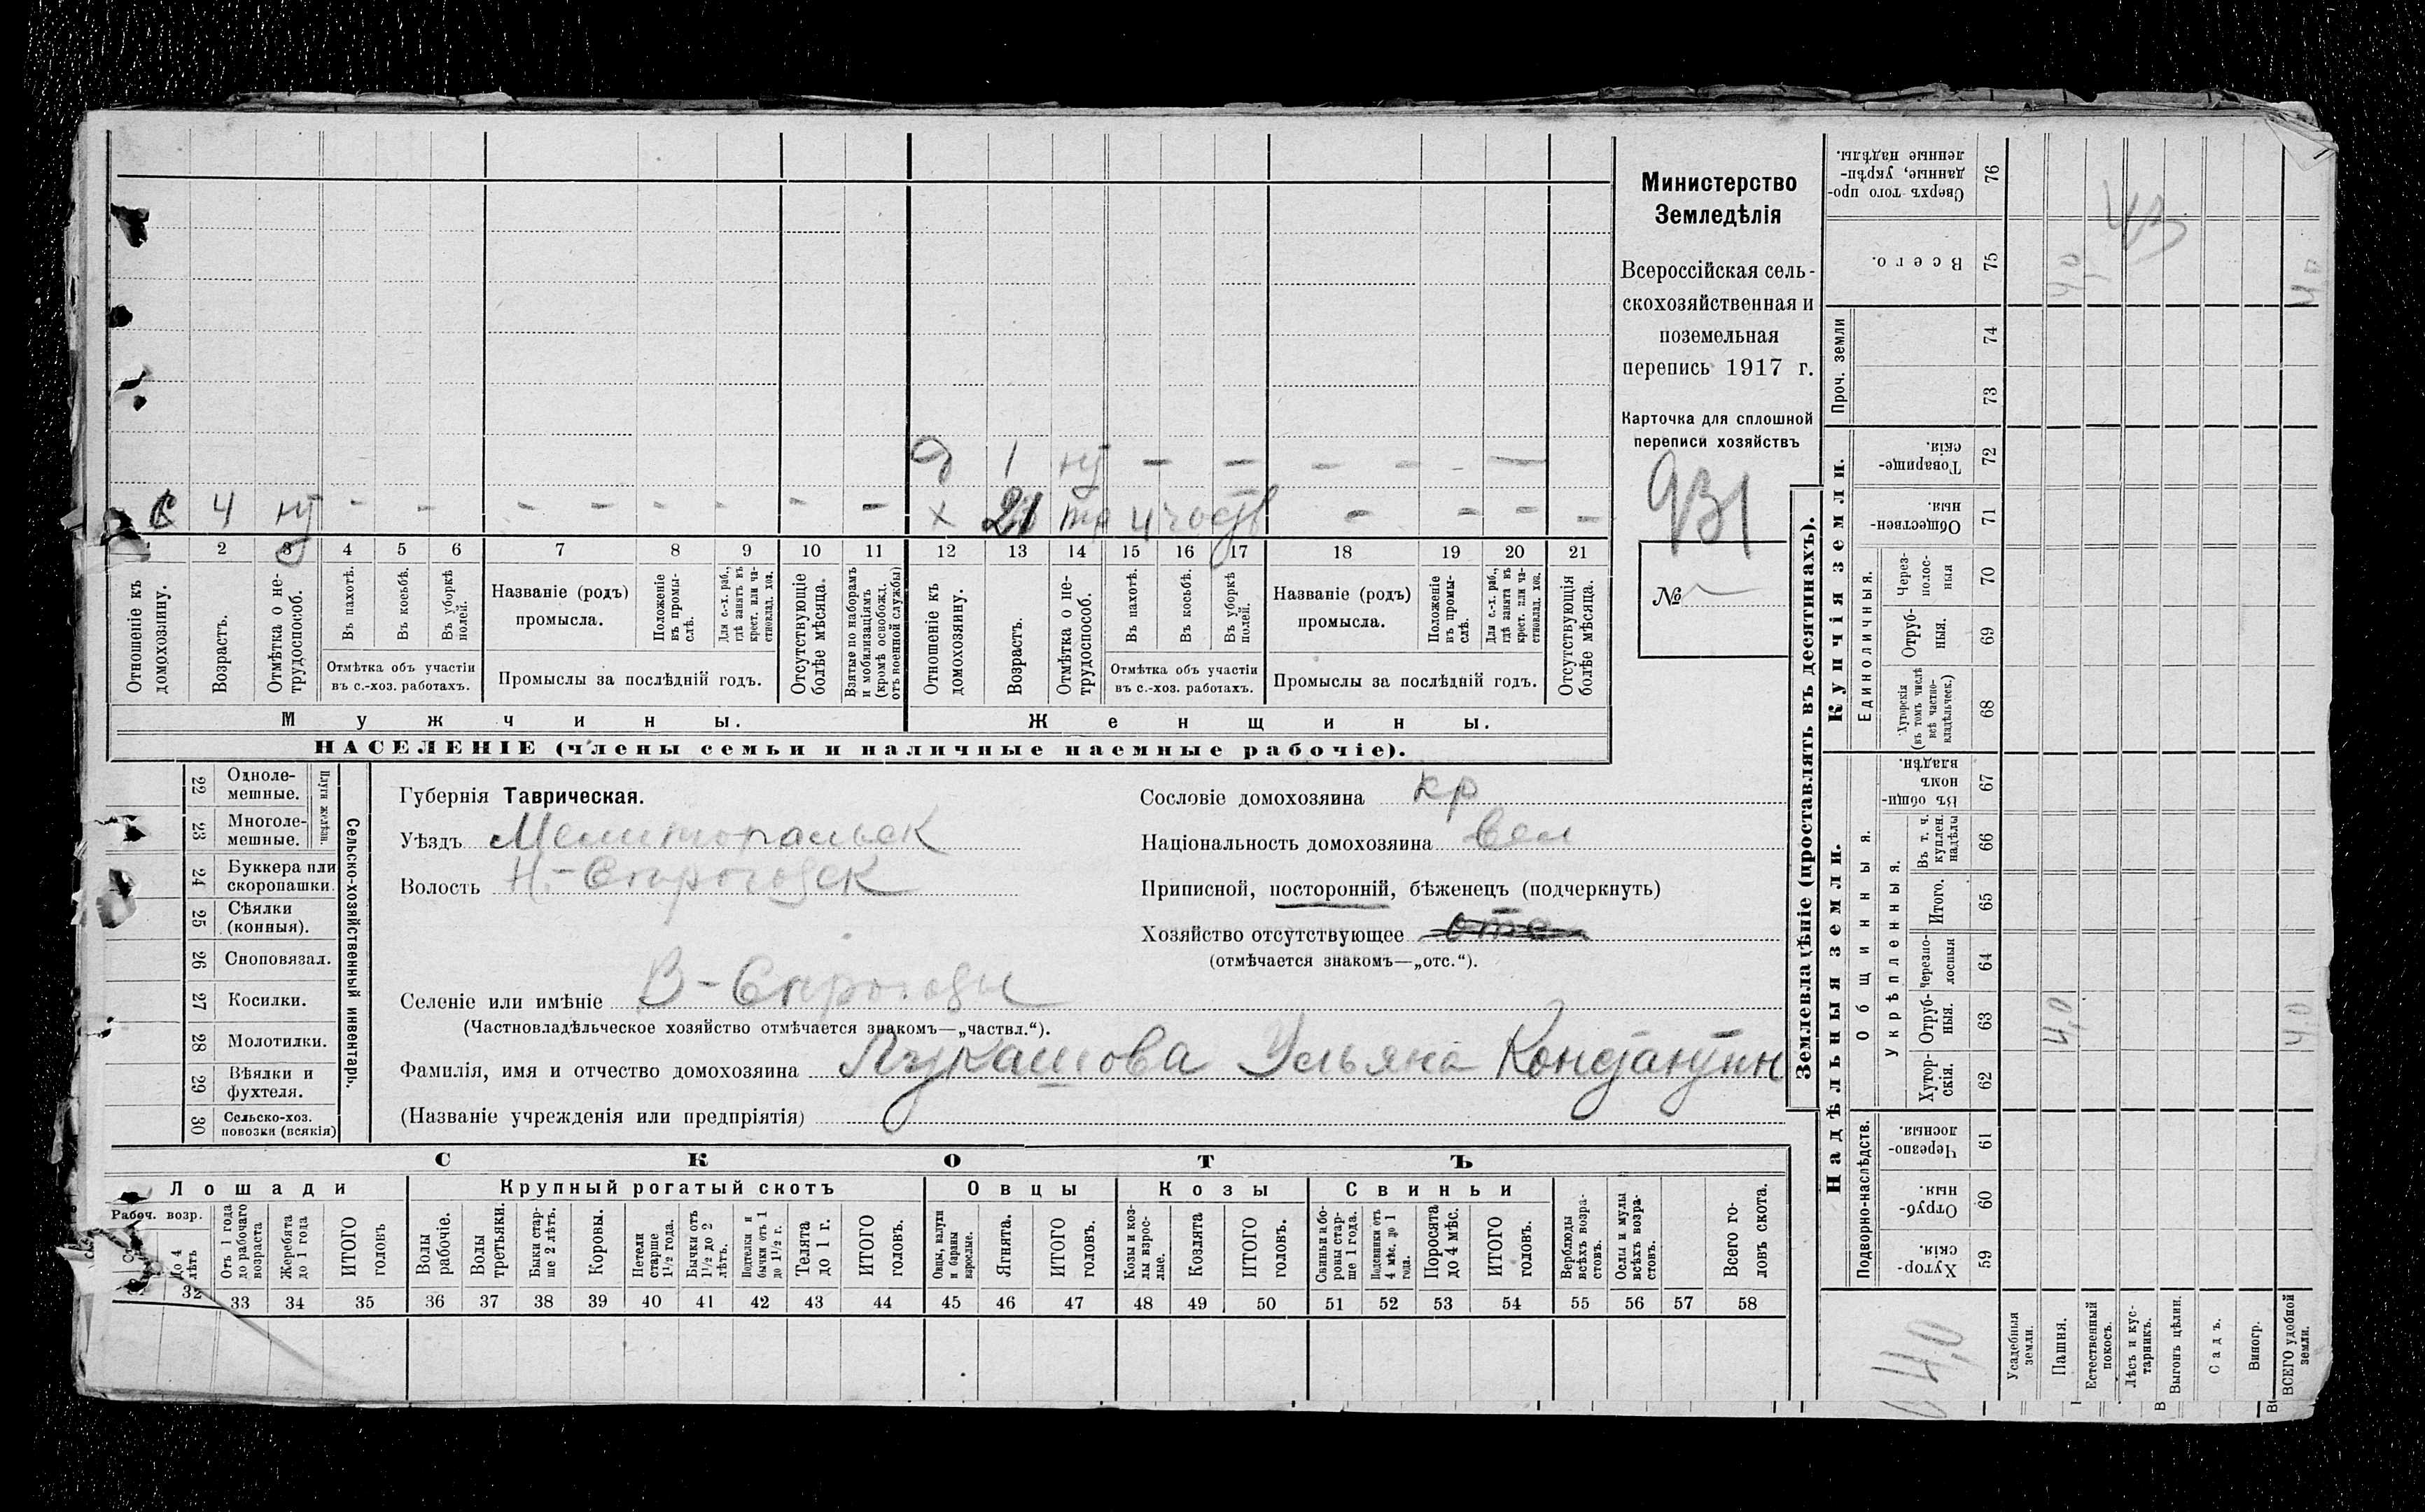 Министерство
Земледѣлія
Всероссійская сель-
скохозяйственная и
поземельная
перепись 1917 г.
Карточка для сплошной
переписи хозяйствъ
931
№
д 1 нт — — — — - —
с 4 нт - - - - - - - - х 21 тр участв - - - -
1 2 3 4 5 6 7 8 9 10 11 12 13 14 15 16 17 18 19 20 21
Отношеніе къ домохозяину.
Возрастъ.
Отмѣтка о не-трудоспособ.
Въ пахотѣ.
Въ косьбѣ.
Въ уборкѣ полей.
Отмѣтка объ участіи
въ с.-хоз. работахъ.
Названіе (родъ)
промысла.
Положеніе въ промы-слѣ.
Для с.-х. раб., гдѣ занятъ въ крест. или ча-стновлад. хоз.
Промыслы за послѣдній годъ.
Отсутствующіе болѣе мѣсяца.
Взятые по наборамъ и мобилизаціямъ (кромѣ освобожд. отъ военной службы)
Отношеніе къ домохозяину.
Возрастъ.
Отмѣтка о не-трудоспособ.
Въ пахотѣ.
Въ косьбѣ.
Въ уборкѣ полей.
Отмѣтка объ участіи
въ с.-хоз. работахъ.
Названіе (родъ)
промысла.
Положеніе въ промы-слѣ.
Для с.-х. раб., гдѣ занята въ крест. или ча-стновлад. хоз.
Промыслы за послѣдній годъ.
Отсутствующія болѣе мѣсяца.
Мужчины. Женщины.
НАСЕЛЕНІЕ (члены семьи и наличные наемные рабочіе).
Сельско-хозяйственный инвентарь.
Плуги желѣзн.
22 Одноле-мешные.
23 Многоле-мешные.
24 Буккера или скоропашки.
25 Сѣялки (конныя).
26 Сноповязал.
27 Косилки.
28 Молотилки.
29 Вѣялки и фухтеля.
30 Сельско-хоз. повозки (всякія)
Губернія Таврическая.
Уѣздъ Мелитопольск
Волость Н.-Сирогозск
Сословіе домохозяина кр
Національность домохозяина вел
Приписной, посторонній, бѣженецъ (подчеркнуть)
Хозяйство отсутствующее отс
(отмѣчается знакомъ—„отс.“).
Селеніе или имѣніе В-Сирогозы
(Частновладѣльческое хозяйство отмѣчается знакомъ—„частвл.“).
Фамилія, имя и отчество домохозяина Лукашова Ульяна Константин
(Названіе учрежденія или предпріятія)
СКОТЪ
Лошади Крупный рогатый скотъ Овцы Козы Свиньи
Рабоч. возр.
До 4 лѣтъ
Отъ 1 года до рабочаго возраста
Жеребята до 1 года
ИТОГО головъ
Волы рабочіе.
Волы третьяки.
Быки стар-ше 2 лѣтъ.
Коровы.
Петели старше 1½ года.
Бычки отъ 1½ до 2 лѣтъ.
Подтелки и бычки отъ 1 до 1½ г.
Телята до 1 г.
ИТОГО головъ.
Овцы, валухи и бараны взрослые.
Ягнята.
ИТОГО головъ.
Козы и коз-лы взрос-лые.
Козлята
ИТОГО головъ.
Свиньи и бо-ровы стар-ше 1 года.
Подсвинки отъ 4 мѣс. до 1 года.
Поросята до 4 мѣс.
ИТОГО головъ.
Верблюды всѣхъ возра-стовъ.
Ослы и мулы всѣхъ возра-стовъ.
Всего го-ловъ скота.
32 33 34 35 36 37 38 39 40 41 42 43 44 45 46 47 48 49 50 51 52 53 54 55 56 57 58
Землевладѣніе (проставлять въ десятинахъ).
Надѣльныя земли.
Купчія земли.
Проч. земли
Подворно-наслѣдств.
Общинныя.
Укрѣпленныя.
Единоличныя.
Сверхъ того про-данные, укрѣп-ленные надѣлы. 76
Всего. 75 4,0 4,0
74
73
Товарище-скія. 72
Обществен-ныя. 71
Через-полос-ныя 70
Отруб-ныя. 69
Хуторскія (въ томъ числѣ всѣ частно-владѣльческ.) 68
Въ общи-номъ владѣн. 67
Въ т. ч. куплен. надѣлы 66
Итого. 65
Черезпо-лосныя 64
Отруб-ныя. 63 4,0 4,0
Хутор-скія. 62
Черезпо-лосныя. 61
Отруб-ныя. 60
Хутор-скія. 59
4,0
Усадебныя земли.
Пашня.
Естественный покосъ.
Лѣсъ и кус-тарникъ.
Выгонъ цѣлин.
Садъ.
Виногр.
ВСЕГО удобной земли.